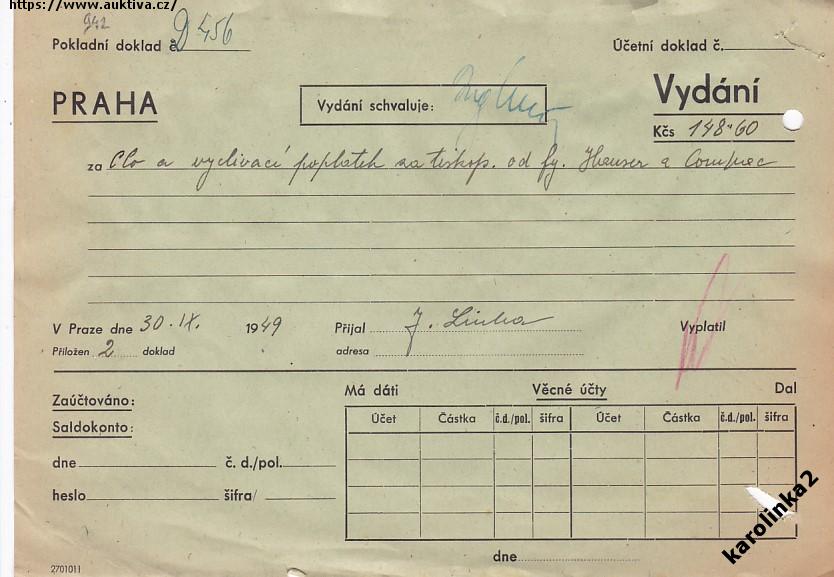 https://www.auktiva.cz/
942
Pokladní doklad č. D 456
Účetní doklad č.
PRAHA
Vydání schvaluje:
Vydání
Kčs 148·60
za Clo a vyclivací poplatek za tiskop. od fy. Hauser a
V Praze dne 30.IX. 1949 Přijal J. Vyplatil
Přiložen 2 doklad adresa
Zaúčtováno: Má dáti Věcné účty Dal
Saldokonto: Účet Částka č.d./pol. šifra Účet Částka č.d./pol. šifra
dne č. d./pol.
heslo šifra/
dne
2701011
karolinka2